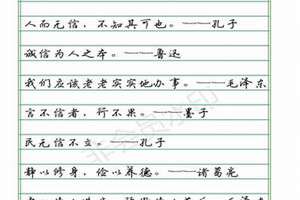 人而无信，不知其可也。——孔子
诚信为人之本。——鲁迅
我们应该老老实实地办事。——毛泽东
言不信者，行不果。——墨子
民无信不立。——孔子
静以修身，俭以养德。——诸葛亮